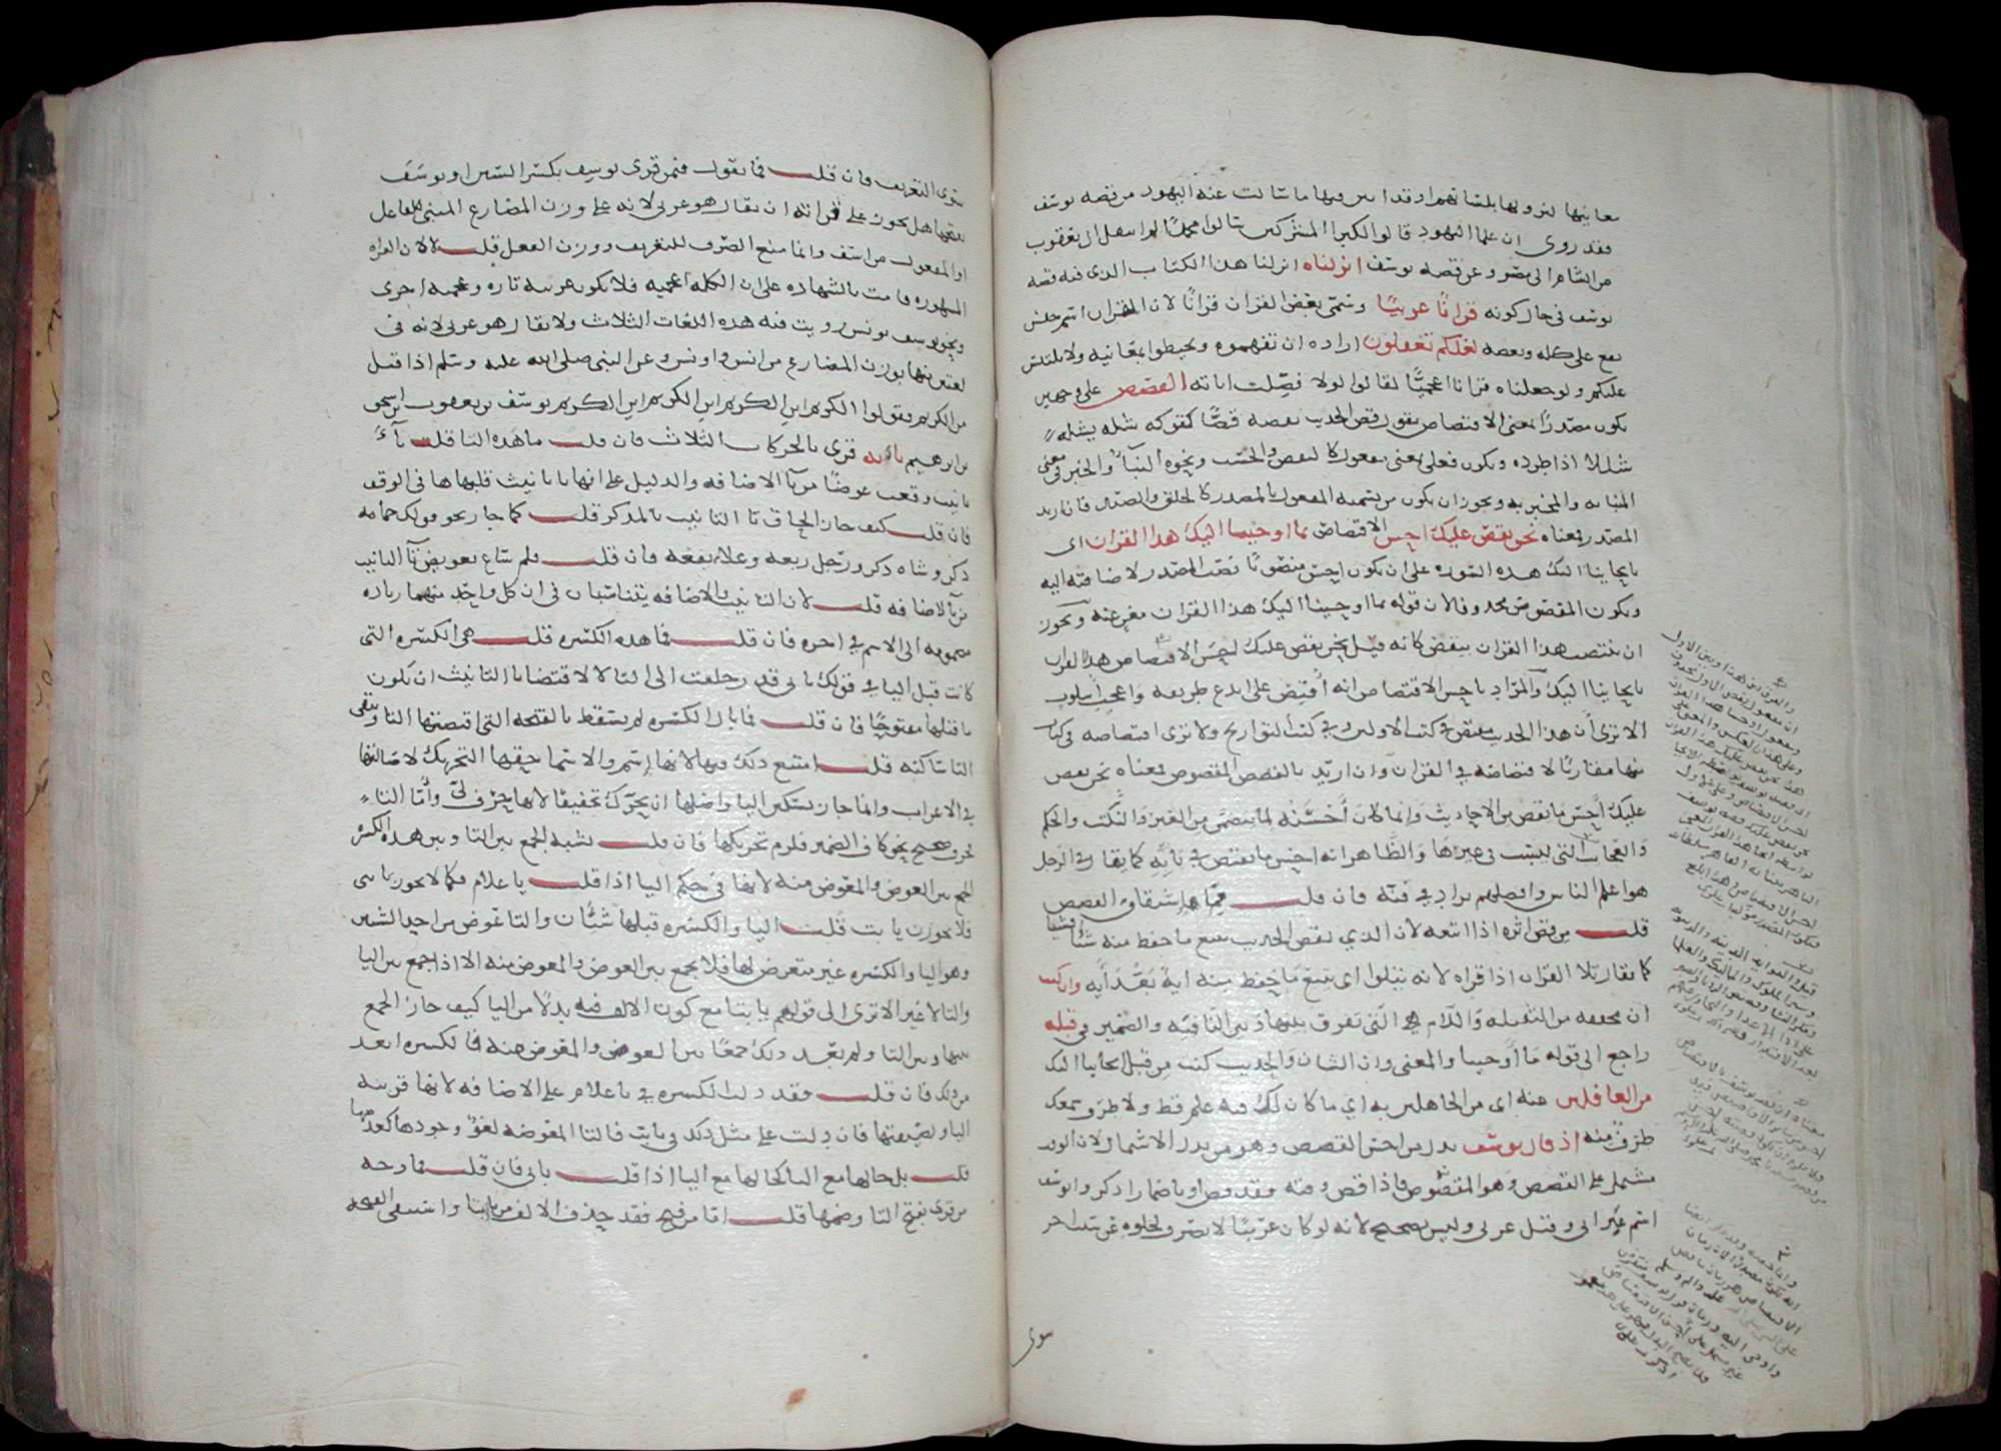 معانيها لنزولها بلسانهم او قد ابين فيها ما سالت عنه اليهود من قصه يوسف
فقد روى ان علما اليهود قالوا لكبرا المشركين سالوا محمدًا لم انتقل ال يعقوب
من الشام الى مصر وعن قصه يوسف انزلناه انزلنا هذا الكتاب الذي فيه قصه
يوسف في حال كونه قرانًا عربيًا وسمى بعض القران قرانًا لان القران اسم جنس
يقع على كله وبعضه لعلكم تعقلون اراده ان تفهموه وتحيطوا بمعانيه ولا يلتبس
عليكم ولو جعلناه قرانا اعجميًا لقالوا لولا فصلت اياته القصص على وجهين
يكون مصدرًا بمعنى الاقتصاص تقول قص الحديث يقصه قصصًا كقولك شله يشله
شللا اذا طرده ويكون فعلا بمعنى مفعول كالنفض والحسب ونحوه النبا والخبر في معنى
المنبا به والمخبر به ويجوز ان يكون من تسميه المفعول بالمصدر كالخلق والصيد فان اريد
المصدر فمعناه نحن نقص عليك احسن الاقتصاص بما اوحينا اليك هذا القران اى
بايحاينا اليك هذه السوره على ان يكون احسن منصوبًا نصب المصدر لاضافته اليه
ويكون المقصوص محذوفا لان قوله بما اوحينا اليك هذا القران مغن عنه ويجوز
ان ينتصب هذا القران بنقص كانه قيل نحن نقص عليك احسن الاقتصاص هذا القران
بايحاينا اليك والمراد باحسن الاقتصاص انه اقتص على ابدع طريقه واعجب اسلوب
الا ترى ان هذا الحديث مقتص في كتب الاولين وفي كتب التواريخ ولا ترى اقتصاصه في كتاب
منها مقاربًا لاقتصاصه في القران وان اريد بالقصص المقصوص فمعناه نحن نقص
عليك احسن ما نقص من الاحاديث وانما كان احسنه لما يتضمن من العبر والنكت والحكم
والعجايب التى ليست في غيرها والظاهر انه احسن ما يقتص في بابه كما يقال في الرجل
هو اعلم الناس وافضلهم يراد في فنه فان قلت مم اشتقاق القصص
قلت من قص اثره اذا اتبعه لان الذي يقص الحديث يتبع ما حفظ منه شيا فشيا
كما يقال تلا القران اذا قراه لانه يتلوا اى يتبع ما حفظ منه اية بعد ايه وان كنت
ان مخففه من الثقيله واللام هى التى تفرق بينها وبين النافيه والضمير في قبله
راجع الى قوله ما اوحينا والمعنى وان الشان والحديث كنت من قبل ايحاينا اليك
من الغافلين عنه اى من الجاهلين به اي ما كان لك فيه علم قط ولا طرق سمعك
طرف منه اذ قال يوسف بدل من احسن القصص وهو من بدل الاشتمال لان الوقت
مشتمل على القصص وهو المقصوص فاذا قص وقته فقد قص او باضمار اذكر ويوسف
اسم عبراني وقيل عربى وليس بصحيح لانه لو كان عربيًا لانصرف لخلوه عن سبب اخر
سوى
سوى التعريف فان قلت فما تقول فيمن قرى يوسف بكسر السين او يوسف
بفتحها هل يجوز على قراته ان يقال هو عربى لانه على وزن المضارع المبنى للفاعل
او المفعول من اسف وانما منع الصرف للتعريف ووزن الفعل قلت لا لان القراه
المشهوره قامت بالشهاده على ان الكلمه اعجميه فلا تكون عربيه تاره وعجميه اخرى
ونحو يوسف يونس رويت فيه هذه اللغات الثلاث ولا يقال هو عربى لانه في
لغتين منها بوزن المضارع من انس واونس وعن النبى صلى الله عليه وسلم اذا قيل
من الكريم فقولوا الكريم ابن الكريم ابن الكريم ابن الكريم يوسف بن يعقوب بن اسحق
بن ابرهيم ياابت قرى بالحركات الثلاث فان قلت ما هذه التا قلت تا
تانيث وقعت عوضًا من يا الاضافه والدليل على انها تا تانيث قلبها ها في الوقف
فان قلت كيف جاز الحاق تا التانيث بالمذكر قلت كما جاز نحو قولك حمامه
ذكر وشاه ذكر ورجل ربعه وغلام يفعه فان قلت فلم ساغ تعويض تا التانيث
من يا الاضافه قلت لان التانيث والاضافه يتناسبان في ان كل واحد منهما زياده
مضمومه الى الاسم في اخره فان قلت فما هذه الكسره قلت هى الكسره التى
كانت قبل اليا في قولك يابي قد زحلقت الى التا لاقتضا تا التانيث ان يكون
ما قبلها مفتوحًا فان قلت فما بال الكسره لم يسقط بالفتحه التى اقتضتها التا وتبقى
التا ساكنه قلت امتنع ذلك فيها لانها اسم والاسما حقها التحريك لاصالتها
في الاعراب وانما جاز تسكين اليا واصلها ان تحرك تخفيفًا لانها حرف لين واما التا
حرف صحيح نحو كاف الضمير فلزم تحريكها فان قلت يشبه الجمع بين التا وبين هذه الكسره
الجمع بين العوض والمعوض منه لانها في حكم اليا اذا قلت ياغلام فكما لا يجوز يا ابتى
فلا يجوز يا ابت قلت اليا والكسره قبلها شيان والتا عوض من احد الشيين
وهو اليا والكسره غير متعرض لها فلا يجمع بين العوض والمعوض منه الا اذا جمع بين اليا
والتا لا غير الا ترى الى قولهم يا ابتا مع كون الالف فيه بدلًا من اليا كيف جاز الجمع
بينها وبين التا ولم يعد ذلك جمعًا بين العوض والمعوض منه فالكسره ابعد
من ذلك فان قلت فقد دلت الكسره في ياغلام على الاضافه لانها قرينه
اليا ولصيقتها فان دلت على مثل ذلك في يا ابت فالتا المعوضه لغو وجودها كعدمها
قلت بل حالها مع التا كحالها مع اليا اذا قلت يا ابى فان قلت فما وجه
من قرى بفتح التا وضمها قلت اما من فتح فقد حذف الالف من يا ابتا واستبقى الفتحه